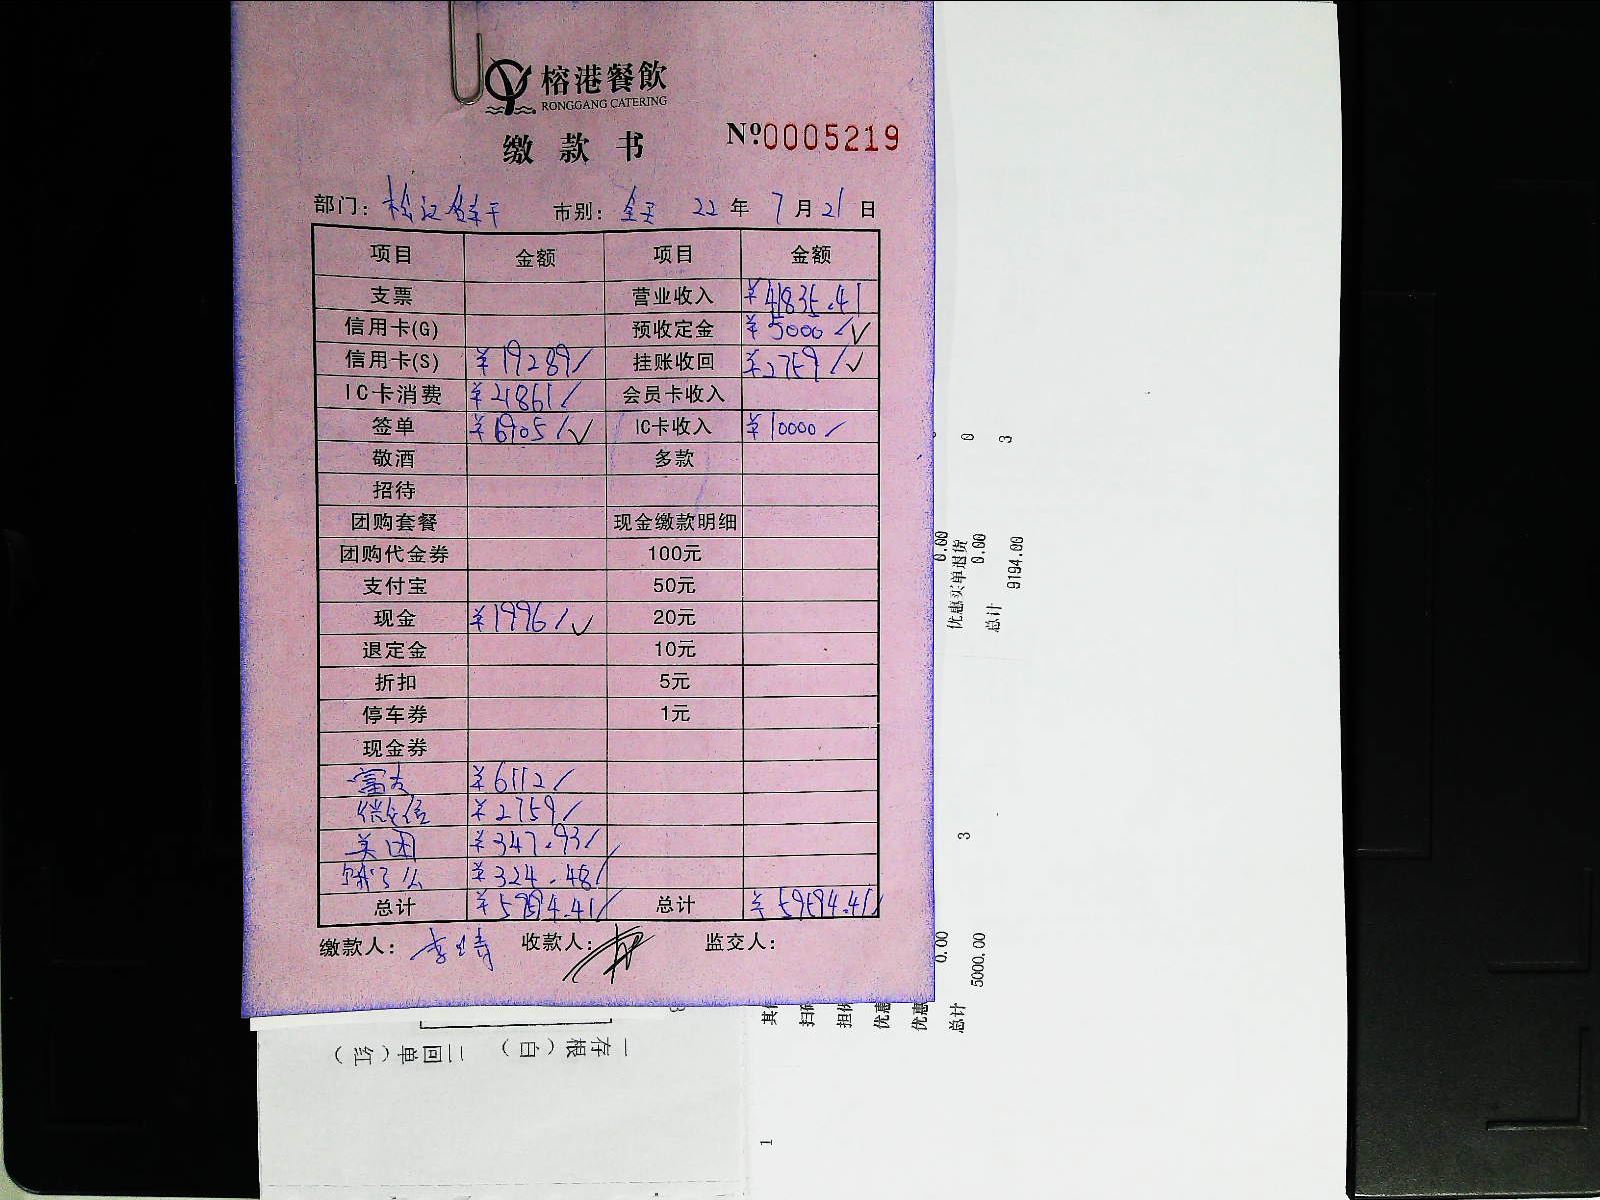 榕港餐飲
RONGGANG CATERING
缴款书
Nº0005219
部门：松江 市别：全天 22年7月21日
项目 金额 项目 金额
支票 营业收入 ¥41835.41
信用卡(G) 预收定金 ¥5000/✓
信用卡(S) ¥19289/ 挂账收回 ¥2759/✓
IC卡消费 ¥21861/ 会员卡收入
签单 ¥6905/✓ IC卡收入 ¥10000/
敬酒 多款
招待
团购套餐 现金缴款明细
团购代金券 100元
支付宝 50元
现金 ¥1996/✓ 20元
退定金 10元
折扣 5元
停车券 1元
现金券
富友 ¥6112/
微信 ¥2759/
美团 ¥347.93/
饿了么 ¥324.48/
总计 ¥59594.41/ 总计 ¥59594.41/
缴款人： 收款人： 监交人：
一存根（白） 二回单（红）
0.00
优惠买单退货
0 0.00
总计
3 9194.00
3
0.00
总计
5000.00
1